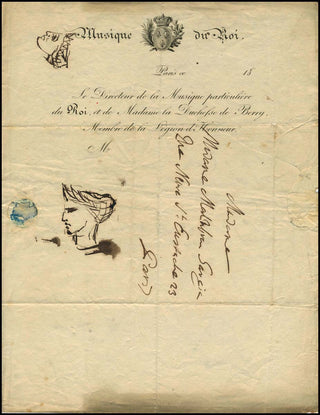 Musique du Roi.
Paris ce 18
Le Directeur de la Musique particulière
du Roi, et de Madame la Duchesse de Berry,
Membre de la Légion d'Honneur
M
Madame
Madame Malibran Garcia
Rue Neuve St Eustache 23
Paris